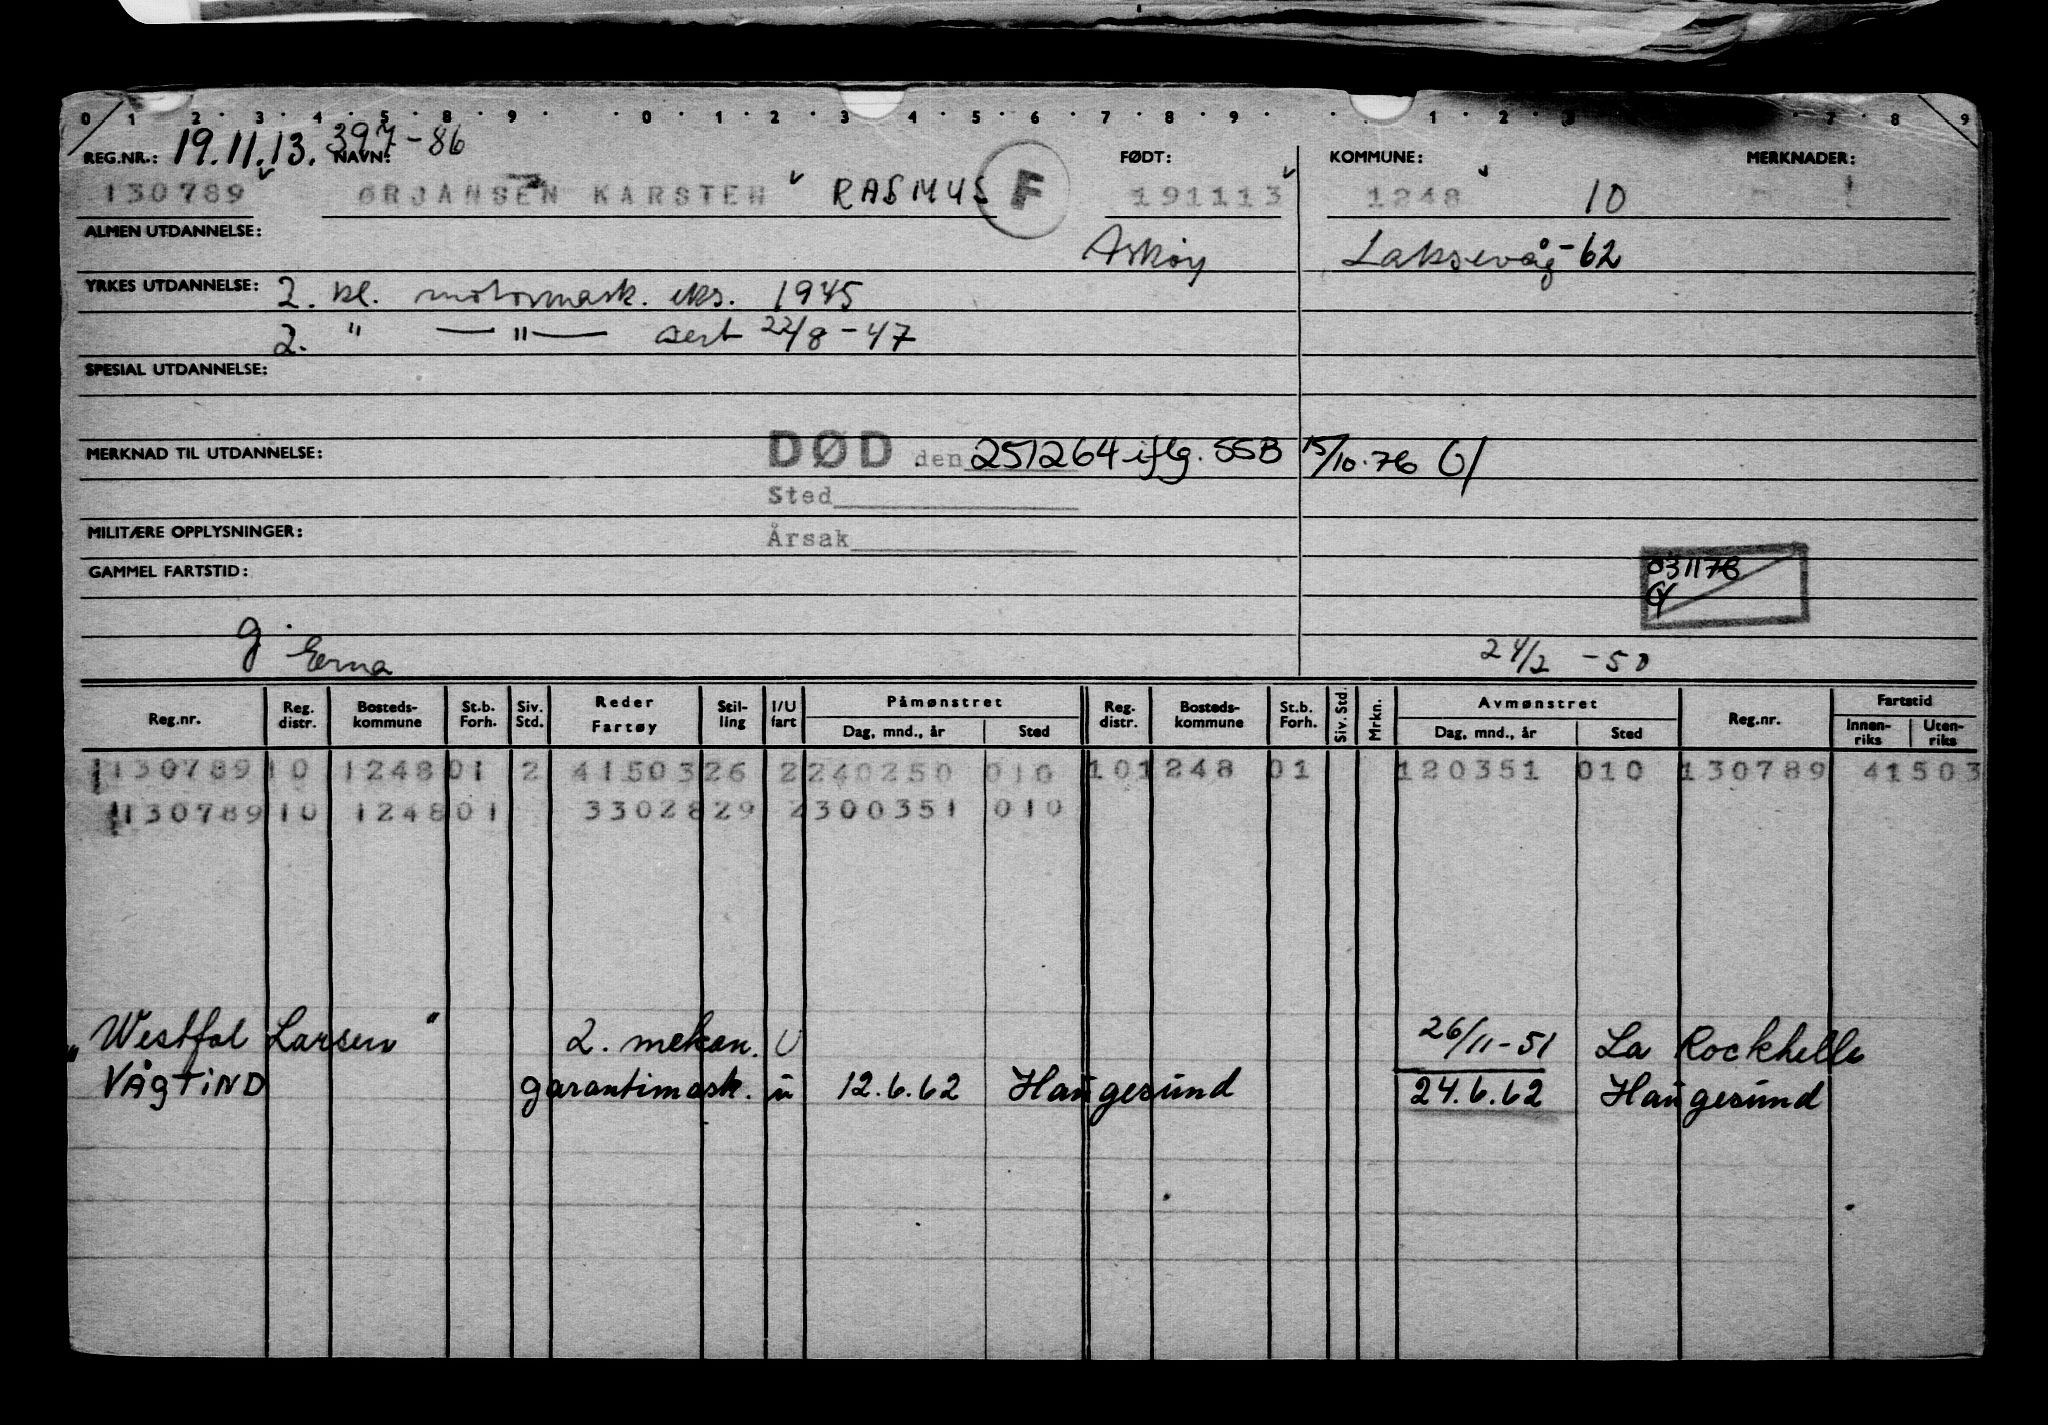 0 1 2 3 4 5 8 9 0 1 2 3 4 5 6 7 8 9 1 2 3 7 8 9
REG.NR.: 19.11.13. 397-86 NAVN: FØDT: KOMMUNE: MERKNADER:
130789 ØRJANSEN KARSTEN RASMUS F 191113 1248 10
ALMEN UTDANNELSE: Askøy Laksevåg-62
YRKES UTDANNELSE: 2. kl. motormask. eks. 1945
2. " —"— sert 22/8-47
SPESIAL UTDANNELSE:
MERKNAD TIL UTDANNELSE: DØD den 251264 iflg. SSB 15/10.76
Sted
MILITÆRE OPPLYSNINGER: Årsak
GAMMEL FARTSTID: 031176
g. Erna 24/2 -50
Reg.nr. Reg. distr. Bosteds-kommune St.b. Forh. Siv. Std. Reder Fartøy Stil-ling I/U fart Påmønstret Dag, mnd., år Sted Reg. distr. Bosteds-kommune St.b. Forh. Siv. Std. Mrkn. Avmønstret Dag, mnd., år Sted Reg.nr. Fartstid Innen-riks Uten-riks
130789 10 1248 01 2 41503 26 2 240250 010 10 1248 01 120351 010 130789 41503
130789 10 1248 01 33028 29 2 300351 010
Westfal Larsen " 2. mekan. U 26/11-51 La Rockhelle
" VÅGTIND garantimask. u 12.6.62 Haugesund 24.6.62 Haugesund